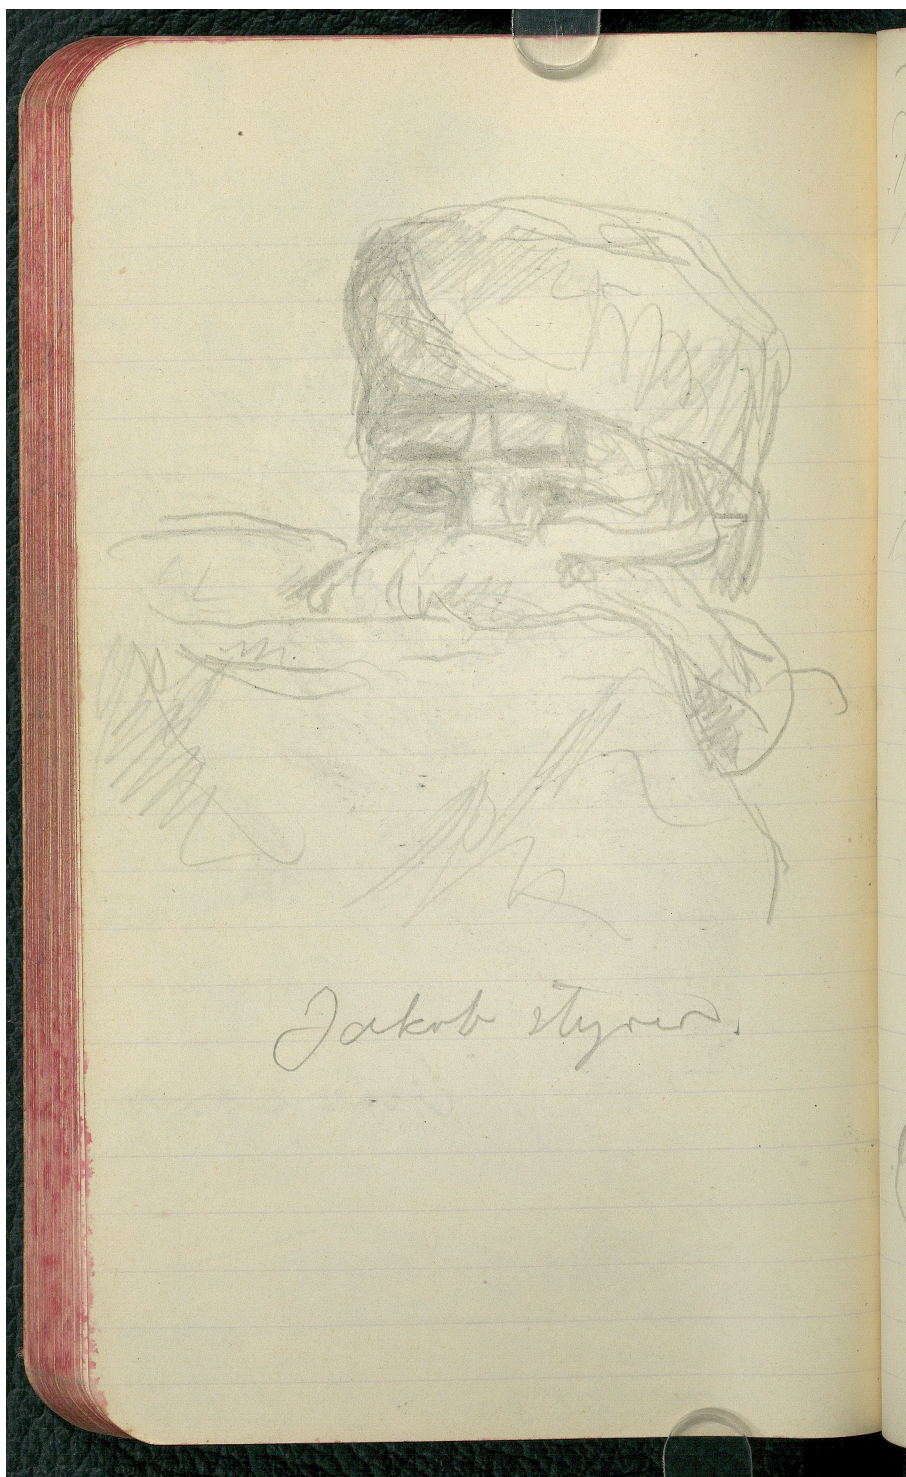 Jakob styrer.